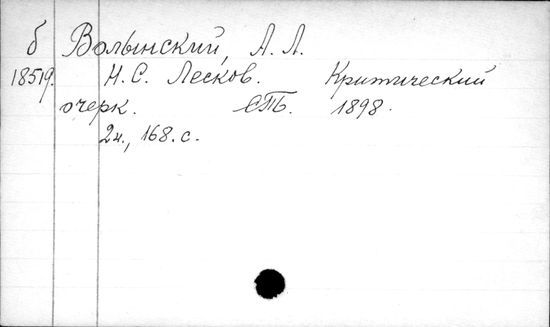 б Волынский, А. Л.
18519. Н. С. Лесков. Критический
очерк. СПБ. 1898.
2н., 168. с.